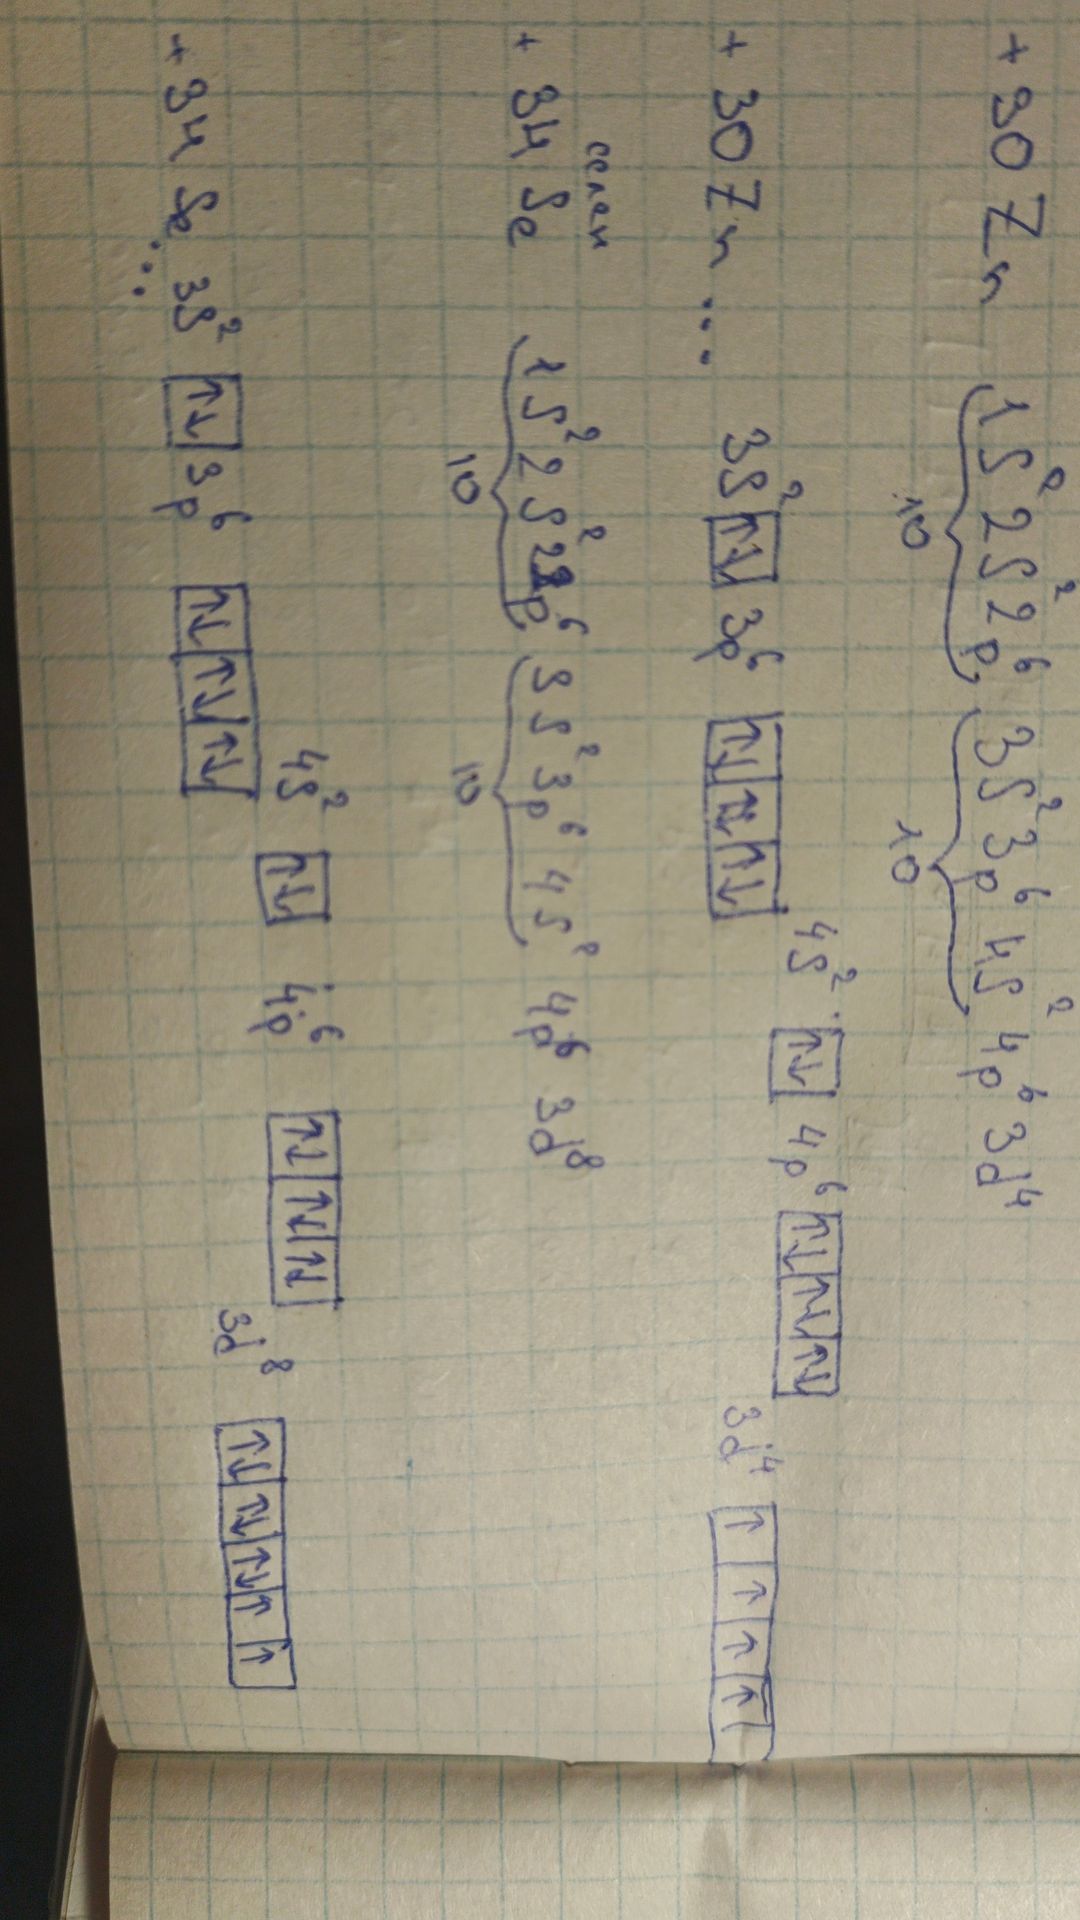 +30 Zn 1s² 2s² 2p⁶ 3s² 3p⁶ 4s² 4p⁶ 3d⁴
10 10
+30 Zn ... 3s² ↑↓ 3p⁶ ↑↓ ↑↓ ↑↓ 4s² ↑↓ 4p⁶ ↑↓ ↑↓ ↑↓ 3d⁴ ↑ ↑ ↑ ↑
селен
+34 Se 1s² 2s² 2p⁶ 3s² 3p⁶ 4s² 4p⁶ 3d⁸
10 10
+34 Se ... 3s² ↑↓ 3p⁶ ↑↓ ↑↓ ↑↓ 4s² ↑↓ 4p⁶ ↑↓ ↑↓ ↑↓ 3d⁸ ↑↓ ↑↓ ↑↓ ↑ ↑